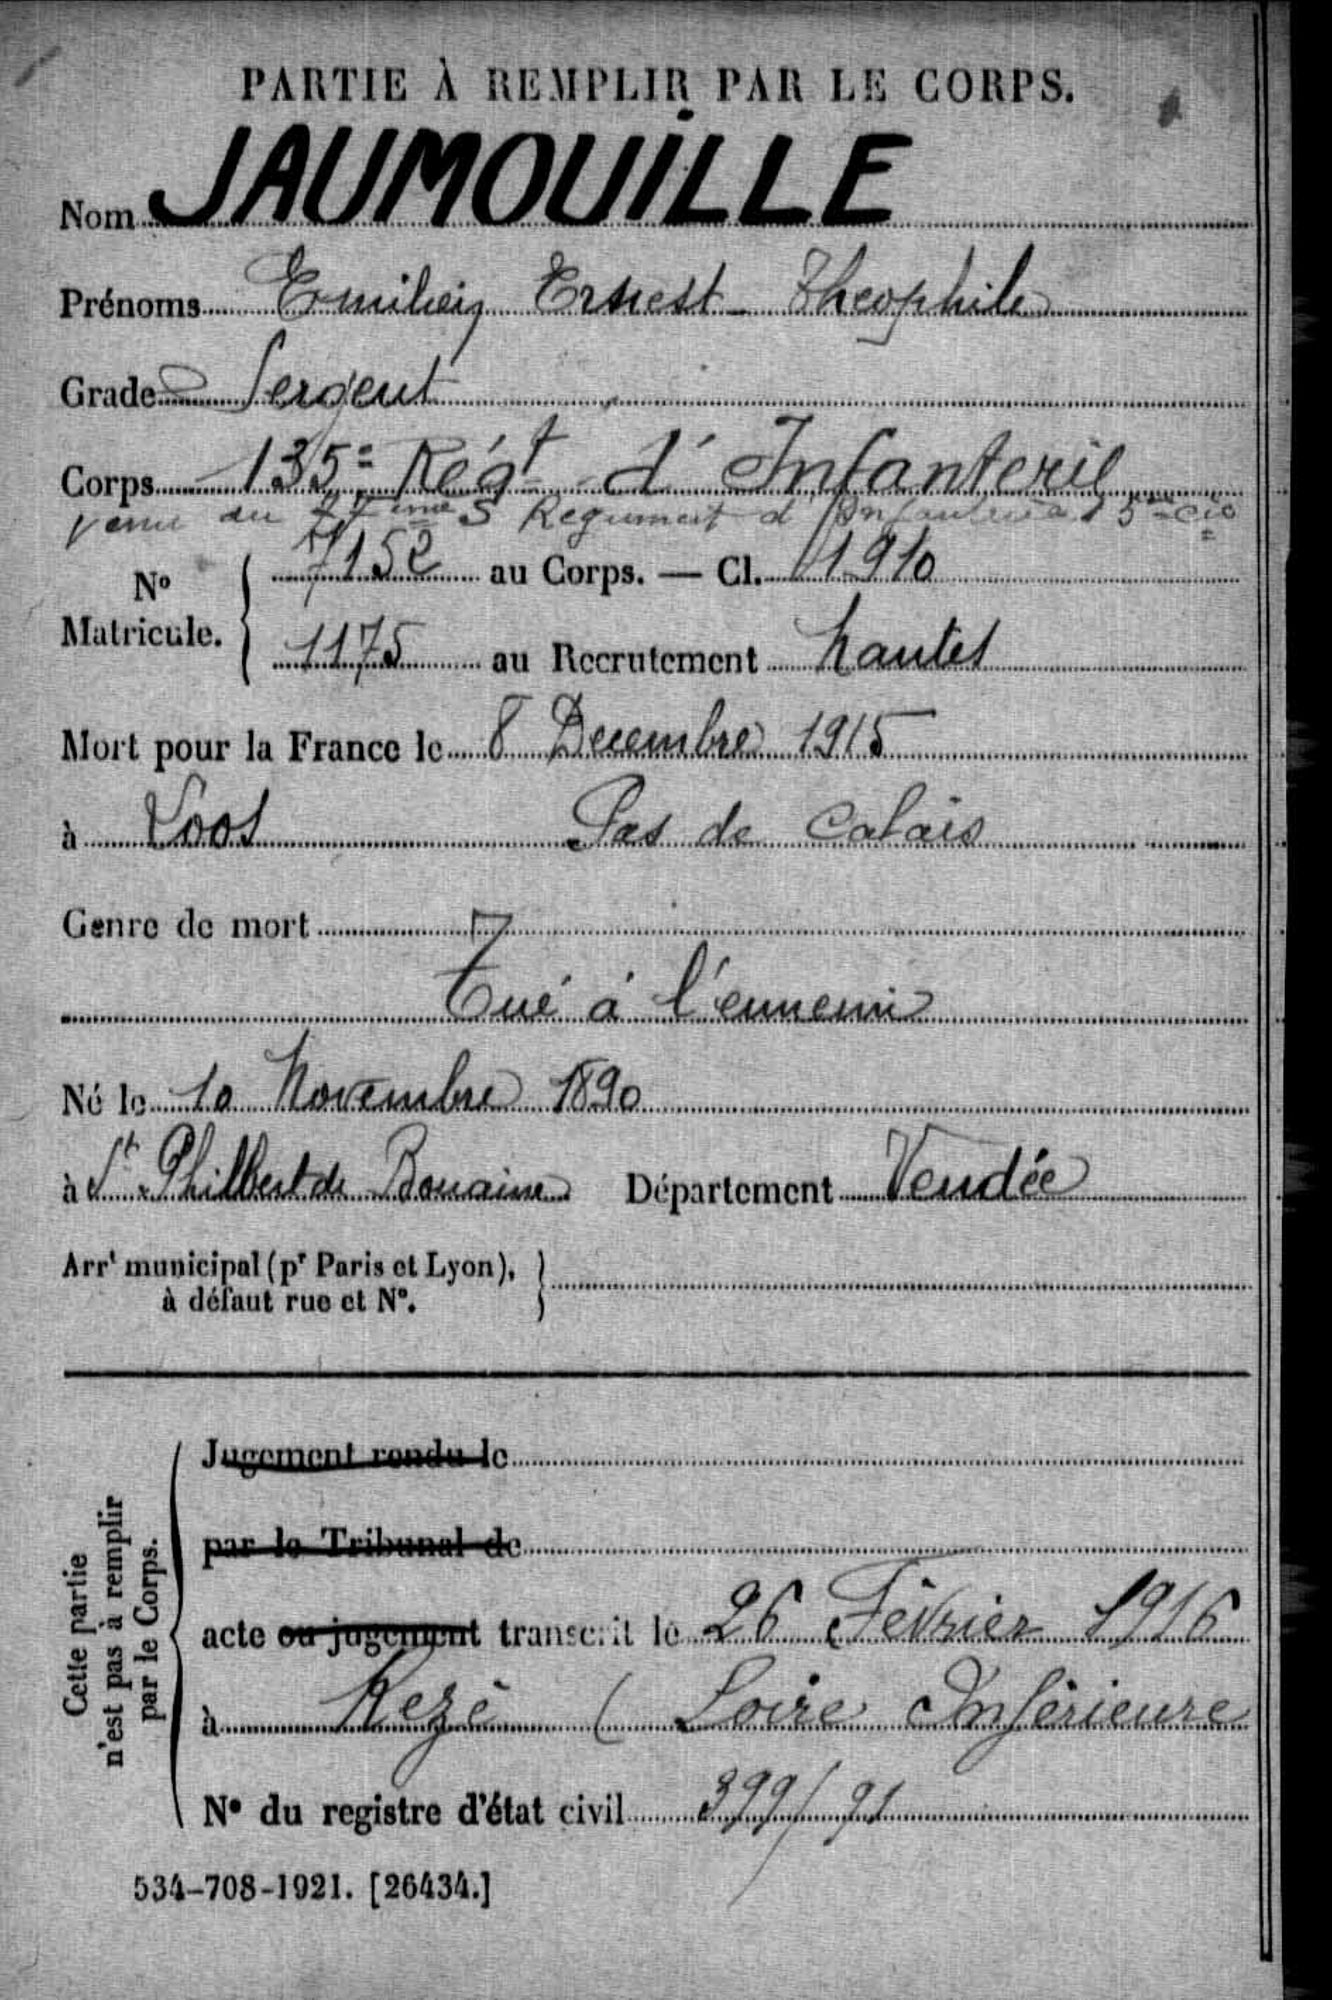 PARTIE À REMPLIR PAR LE CORPS.
Nom JAUMOUILLE
Prénoms Emilien Ernest Théophile
Grade Sergent
Corps 135e Régt d'Infanterie
venu du 77ème Régiment d'Infanterie 5e Cie
No Matricule. 7152 au Corps. — Cl. 1910
1175 au Recrutement Nantes
Mort pour la France le 8 Decembre 1915
à Loos Pas de Calais
Genre de mort
Tué à l'ennemi
Né le 10 Novembre 1890
à St Philbert de Bouaine Département Vendée
Arrt municipal (pr Paris et Lyon),
à défaut rue et No.
Cette partie
n'est pas à remplir
par le Corps.
Jugement rendu le
par le Tribunal de
acte ou jugement transcrit le 26 Février 1916
à Rezé (Loire Inférieure
No du registre d'état civil 399/91
534-708-1921. [26434.]